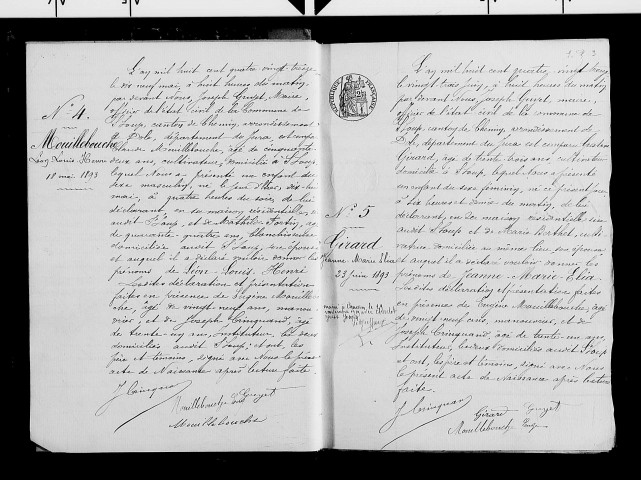 N° 4.
Mouillebouche
Léon Louis Henri
18 mai 1893
L'an mil huit cent quatre vingt treize
le dix neuf mai, à huit heures du matin,
par devant Nous, Joseph Guyet, Maire,
officier de l'état civil de la Commune de
Soup, canton de Chemin, arrondissement
de Dole, département du Jura, est comparu
Mouillebouche, âgé de cinquante
deux ans, cultivateur, domicilié à Soup,
lequel Nous a présenté un enfant du
sexe masculin, né le jour d'hier, dix-huit
mai, à quatre heures du soir, de lui
déclarant en sa maison résidentielle,
audit Soup et de Mathilde
de quarante quatre ans, blanchisseuse
domiciliée audit Soup, son épouse
et auquel il a déclaré vouloir donner les
prénoms de Léon-Louis-Henri
Lesdites déclaration et présentation
faites en présence de Eugène Mouillebou-
che, âgé de vingt neuf ans, manou-
vrier, et de Joseph Cringuand, âgé
de trente-un ans, instituteur, les deux
domiciliés audit Soup, et ont les
père et témoins, signé avec Nous le présent
acte de Naissance après lecture faite.
J Cringuand
Mouillebouche Guyet
Mouillebouche
N° 5
Girard
Jeanne Marie Elia
23 Juin 1893
RÉPUBLIQUE FRANÇAISE
L'an mil huit cent quatre vingt treize
le vingt trois juin, à huit heures du matin
par devant Nous, Joseph Guyet, maire,
officier de l'état civil de la commune
de Soup, canton de Chemin, arrondissement de
Dole, département du Jura est comparu
Girard, âgé de trente trois ans, cultivateur
domicilié à Soup, lequel Nous a présenté
un enfant du sexe féminin, né ce présent jour,
à six heures et demie du matin, de lui
déclarant, en sa maison résidentielle sise
audit Soup et de Marie Bathet, culti-
vatrice, domiciliée au même lieu, son épouse
et auquel il a déclaré vouloir donner les
prénoms de Jeanne-Marie-Elia.
Lesdites déclaration et présentation faites
en présence de Eugène Mouillebouche, âgé
de vingt neuf ans, manouvrier, et de
Joseph Cringuand, âgé de trente-un ans,
Instituteur, les deux domiciliés audit Soup
et ont, les père et témoins, signé avec Nous
le présent acte de Naissance après lecture
faite.
J Cringuand
Girard Guyet
Mouillebouche